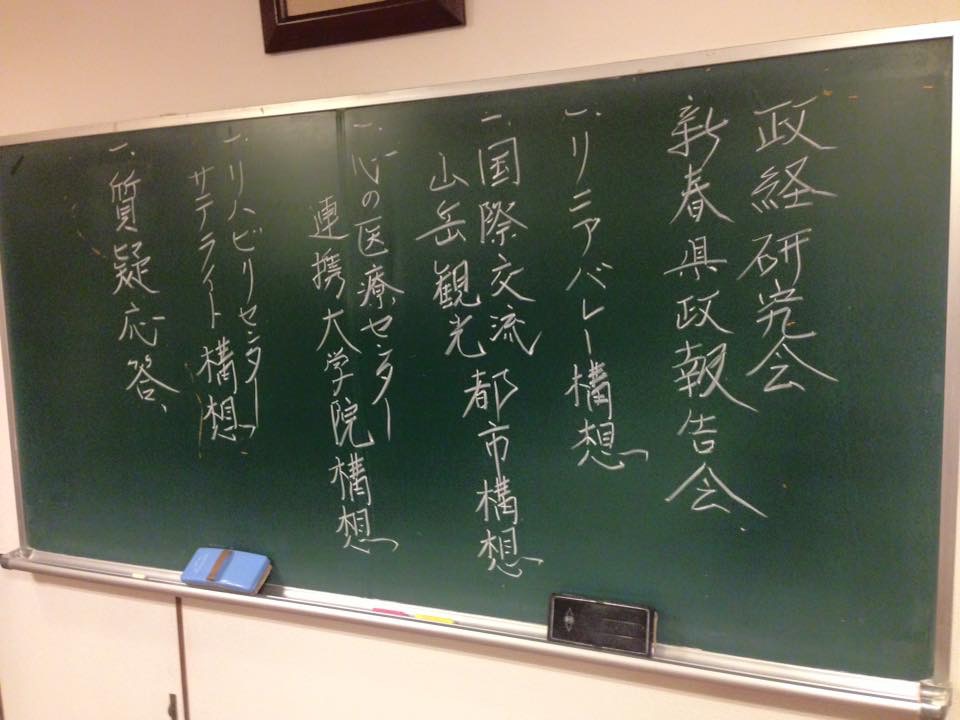 政経研究会
新春県政報告会
一.リニアバレー構想
一.国際交流都市構想
山岳観光
一.心の医療センター
連携大学院構想
一.リハビリセンター
サテライト構想
一.質疑応答、